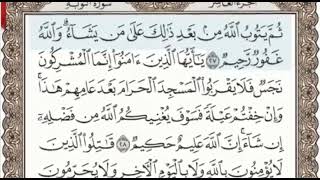 سورة التوبة
الجزء العاشر
ثُمَّ يَتُوبُ ٱللَّهُ مِنۢ بَعْدِ ذَٰلِكَ عَلَىٰ مَن يَشَآءُ ۗ وَٱللَّهُ
غَفُورٌ رَّحِيمٌ ٢٧ يَٰٓأَيُّهَا ٱلَّذِينَ ءَامَنُوٓا۟ إِنَّمَا ٱلْمُشْرِكُونَ
نَجَسٌ فَلَا يَقْرَبُوا۟ ٱلْمَسْجِدَ ٱلْحَرَامَ بَعْدَ عَامِهِمْ هَٰذَا ۚ
وَإِنْ خِفْتُمْ عَيْلَةً فَسَوْفَ يُغْنِيكُمُ ٱللَّهُ مِن فَضْلِهِۦٓ
إِن شَآءَ ۚ إِنَّ ٱللَّهَ عَلِيمٌ حَكِيمٌ ٢٨ قَٰتِلُوا۟ ٱلَّذِينَ
لَا يُؤْمِنُونَ بِٱللَّهِ وَلَا بِٱلْيَوْمِ ٱلْءَاخِرِ وَلَا يُحَرِّمُونَ